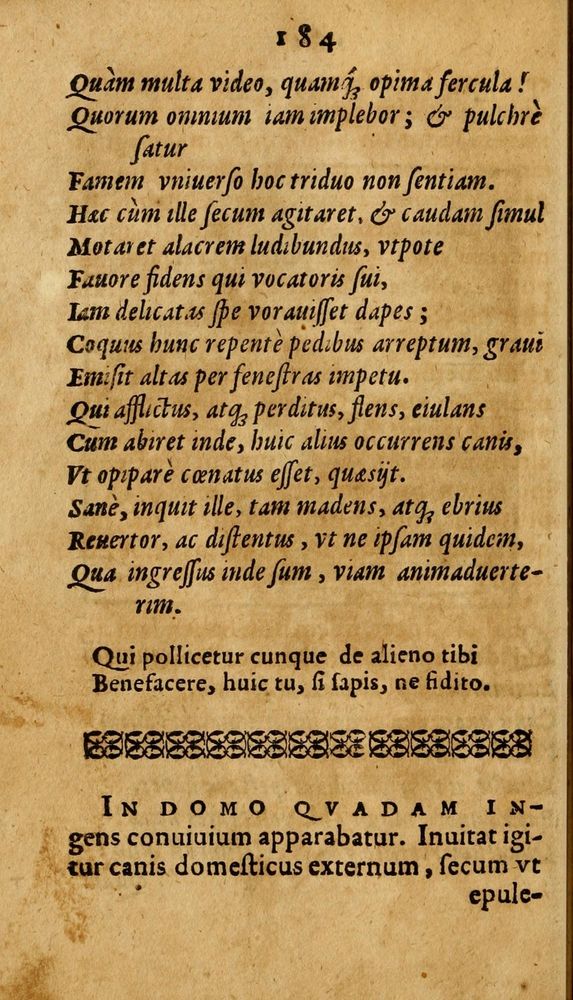 184
Quàm multa video, quamq́ꝫ opima fercula!
Quorum omnium iam implebor; & pulchrè
ſatur
Famem vniuerſo hoc triduo non ſentiam.
Hæc cùm ille ſecum agitaret, & caudam ſimul
Motaret alacrem ludibundus, vtpote
Fauore fidens qui vocatoris ſui,
Iam delicatas ſpe vorauiſſet dapes;
Coquus hunc repentè pedibus arreptum, graui
Emiſit altas per feneſtras impetu.
Qui afflictus, atqꝫ perditus, flens, eiulans
Cùm abiret inde, huic alius occurrens canis,
Vt opiparè cœnatus eſſet, quæsijt.
Sanè, inquit ille, tam madens, atqꝫ ebrius
Reuertor, ac diſtentus, vt ne ipſam quidem,
Qua ingreſſus inde ſum, viam animaduerte-
rim.
Qui pollicetur cunque de alieno tibi
Benefacere, huic tu, ſi ſapis, ne fidito.
IN DOMO QVADAM IN-
gens conuiuium apparabatur. Inuitat igi-
tur canis domeſticus externum, ſecum vt
epule-